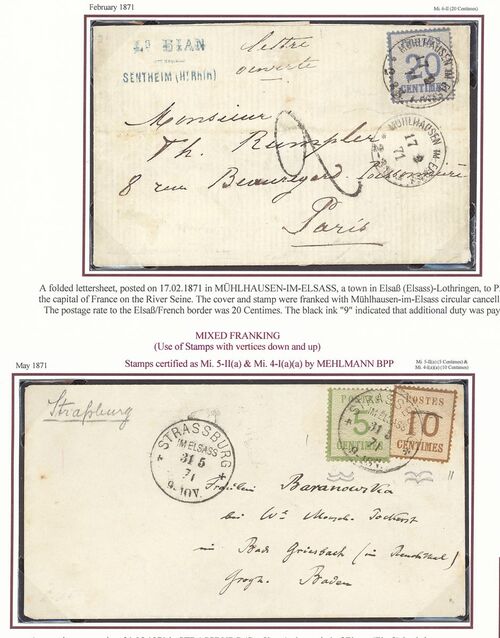 February 1871
Mi. 4-II (20 Centimes)
SENTHEIM (Ht Rhin)
lettre
ouverte
20
CENTIMES
MÜHLHAUSEN IM ELS
MÜHLHAUSEN IM ELS
17 2
71
Monsieur
Th. Rumpler
8 rue Beauregard Poissonnière
Paris
A folded lettersheet, posted on 17.02.1871 in MÜHLHAUSEN-IM-ELSASS, a town in Elsaß (Elsass)-Lothringen, to P
the capital of France on the River Seine. The cover and stamp were franked with Mühlhausen-im-Elsass circular cancell
The postage rate to the Elsaß/French border was 20 Centimes. The black ink "9" indicated that additional duty was pay
MIXED FRANKING
(Use of Stamps with vertices down and up)
May 1871
Stamps certified as Mi. 5-II(a) & Mi. 4-I(a)(a) by MEHLMANN BPP
Mi. 5-II(a) (5 Centimes) &
Mi. 4-I(a)(a) (10 Centimes)
Straßburg
POSTES
5
CENTIMES
POSTES
10
CENTIMES
STRASSBURG
IM ELSASS
31 5
71
STRASSBURG
IM ELSASS
31 5
71
9-10V.
Fräulein Baranowska
bei
in Bad Griesbach (im Renchthal)
Grogh. Baden